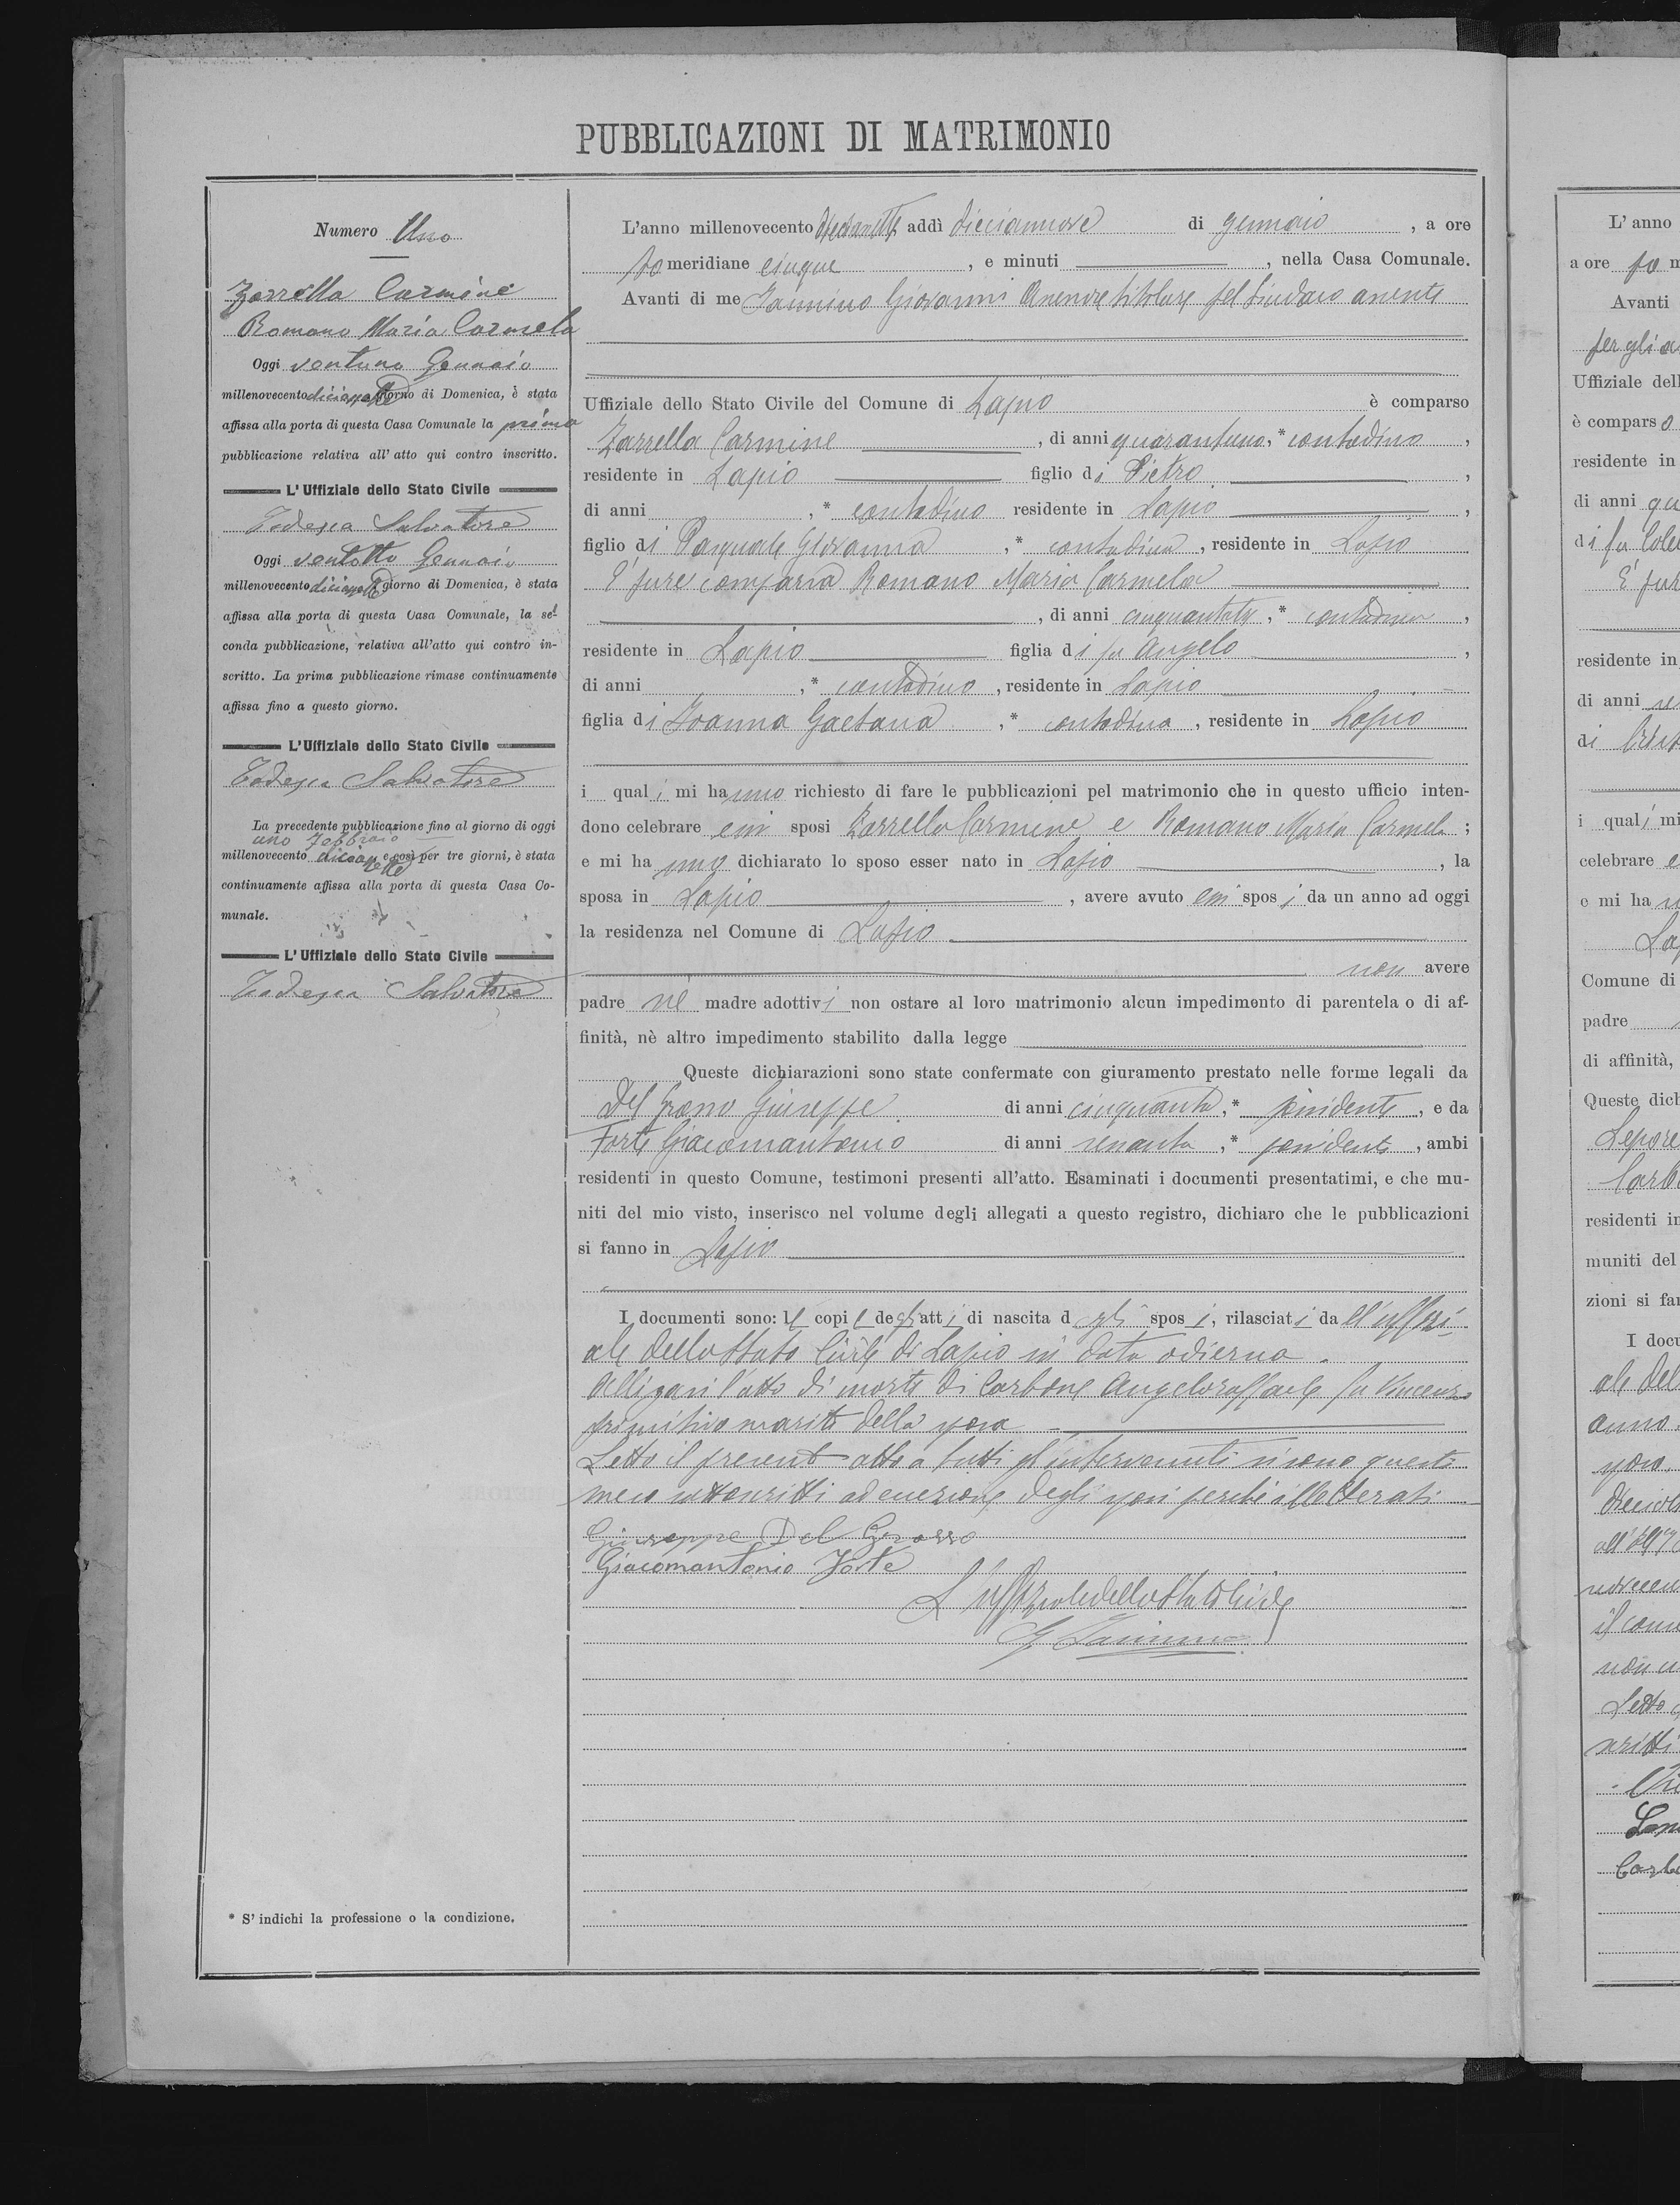 PUBBLICAZIONI DI MATRIMONIO
Numero Uno
Zarrella Carmine
Romano Maria Carmela
Oggi ventuno Gennaio
millenovecento diciassette giorno di Domenica, è stata
affissa alla porta di questa Casa Comunale la prima
pubblicazione relativa all' atto qui contro inscritto.
L' Uffiziale dello Stato Civile
Tedesca Salvatore
Oggi ventotto Gennaio
millenovecento diciassette giorno di Domenica, è stata
affissa alla porta di questa Casa Comunale, la se-
conda pubblicazione, relativa all'atto qui contro in-
scritto. La prima pubblicazione rimase continuamente
affissa fino a questo giorno.
L'Uffiziale dello Stato Civile
Tedesca Salvatore
La precedente pubblicazione fino al giorno di oggi
uno Febbraio
millenovecento diciassette e così per tre giorni, è stata
continuamente affissa alla porta di questa Casa Co-
munale.
L' Uffiziale dello Stato Civile
Tedesca Salvatore
* S' indichi la professione o la condizione.
L'anno millenovecento diciassette addì diciannove di gennaio , a ore
po meridiane cinque , e minuti , nella Casa Comunale.
Avanti di me Iannino Giovanni Assessore titolare pel Sindaco assente
Uffiziale dello Stato Civile del Comune di Lapio è comparso
Zarrella Carmine , di anni quarantuno, * contadino ,
residente in Lapio figlio di Pietro ,
di anni , * contadino residente in Lapio ,
figlio di Pasquale Giovanna , * contadina , residente in Lapio
E' pure comparsa Romano Maria Carmela
, di anni cinquantatre , * contadina ,
residente in Lapio figlia di fu Angelo ,
di anni , * contadino , residente in Lapio
figlia di Ioanna Gaetana , * contadina , residente in Lapio
i quali mi hanno richiesto di fare le pubblicazioni pel matrimonio che in questo ufficio inten-
dono celebrare essi sposi Zarrella Carmine e Romano Maria Carmela ;
e mi hanno dichiarato lo sposo esser nato in Lapio , la
sposa in Lapio , avere avuto essi sposi da un anno ad oggi
la residenza nel Comune di Lapio
non avere
padre nè madre adottivi non ostare al loro matrimonio alcun impedimento di parentela o di af-
finità, nè altro impedimento stabilito dalla legge
Queste dichiarazioni sono state confermate con giuramento prestato nelle forme legali da
Del Grosso Giuseppe di anni cinquanta, * possidente , e da
Forte Giacomantonio di anni sessanta , * possidente , ambi
residenti in questo Comune, testimoni presenti all'atto. Esaminati i documenti presentatimi, e che mu-
niti del mio visto, inserisco nel volume degli allegati a questo registro, dichiaro che le pubblicazioni
si fanno in Lapio
I documenti sono: le copie degli atti di nascita degli sposi, rilasciati dall'uffizi-
ale dello Stato Civile di Lapio in data odierna.
Alligasi l'atto di morte di Carbone Angeloraffaele fu Vincenzo
primitivo marito della sposa
Letto il presente atto a tutti gl'intervenuti si sono questi
meco sottoscritti ad eccezione degli sposi perchè illetterati
Giuseppe Del Grosso
Giacomantonio Forte
L'Uffiziale dello Stato Civile
G Iannino
L' anno
a ore po m
Avanti
per gli a
Uffiziale dell
è comparso
residente in
di anni qu
di fu
E' pur
residente in
di anni
di
i quali mi
celebrare e
e mi ha
La
Comune di
padre
di affinità,
Queste dich
Lepore
Carb
residenti in
muniti del
zioni si fan
I docu
ale del
anno
sposa
il com
non
Letto
Carb